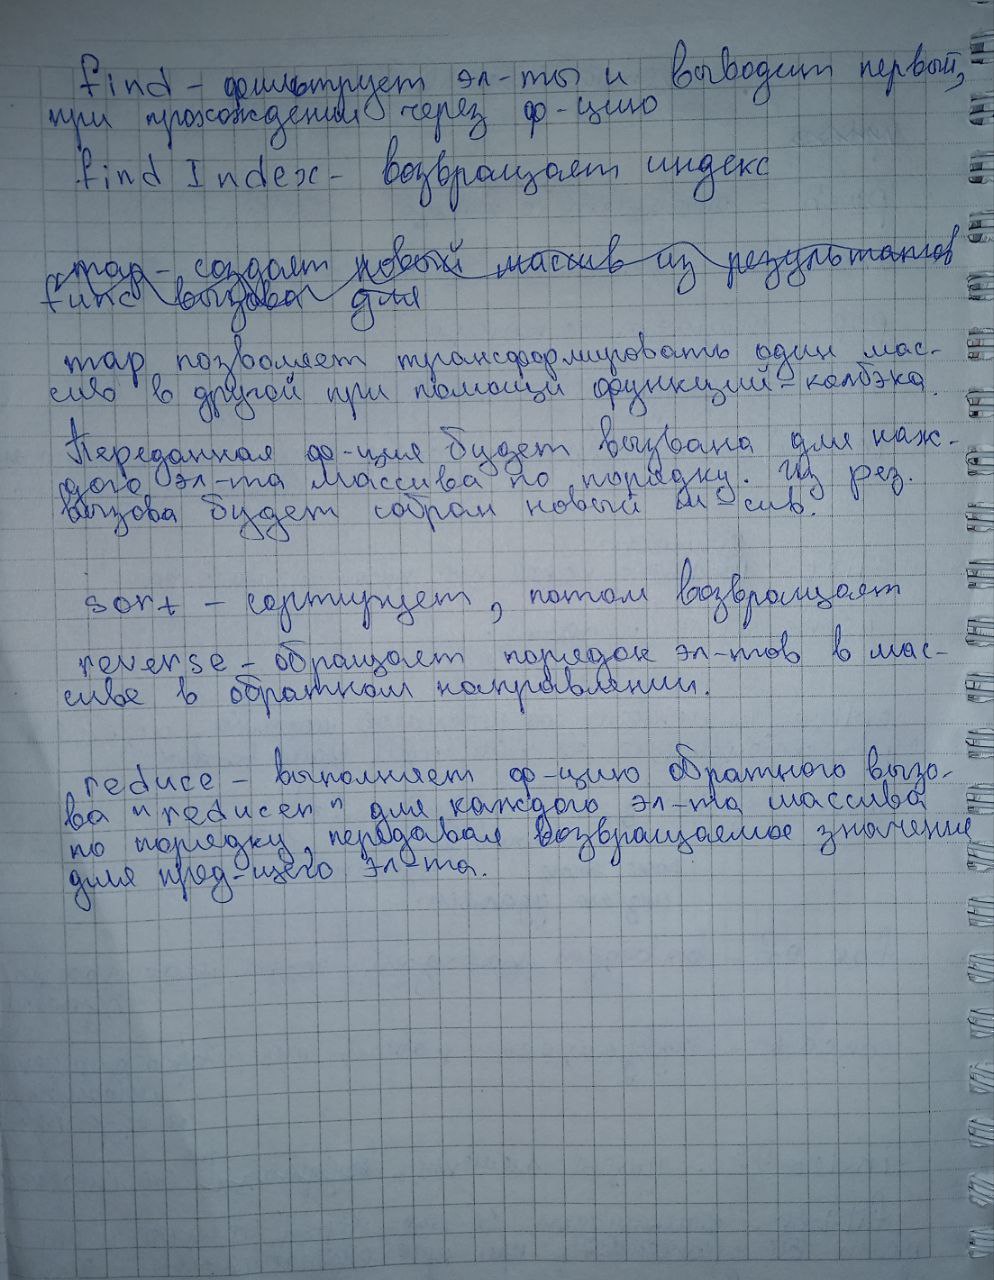 find - фильтрует эл-ты и выводит первый,
при прохождении через ф-цию
find Index - возвращает индекс
map - создает новый массив из результатов
func вызова для
map позволяет трансформировать один мас-
сив в другой при помощи функций-колбэка.
Переданная ф-ция будет вызвана для каж-
дого эл-та массива по порядку. Из рез.
вызова будет собран новый м-сив.
sort - сортирует, потом возвращает
reverse - обращает порядок эл-тов в мас-
сиве в обратном направлении.
reduce - выполняет ф-цию обратного вызо-
ва "reducer" для каждого эл-та массива
по порядку, передавая возвращаемое значение
для пред-щего эл-та.